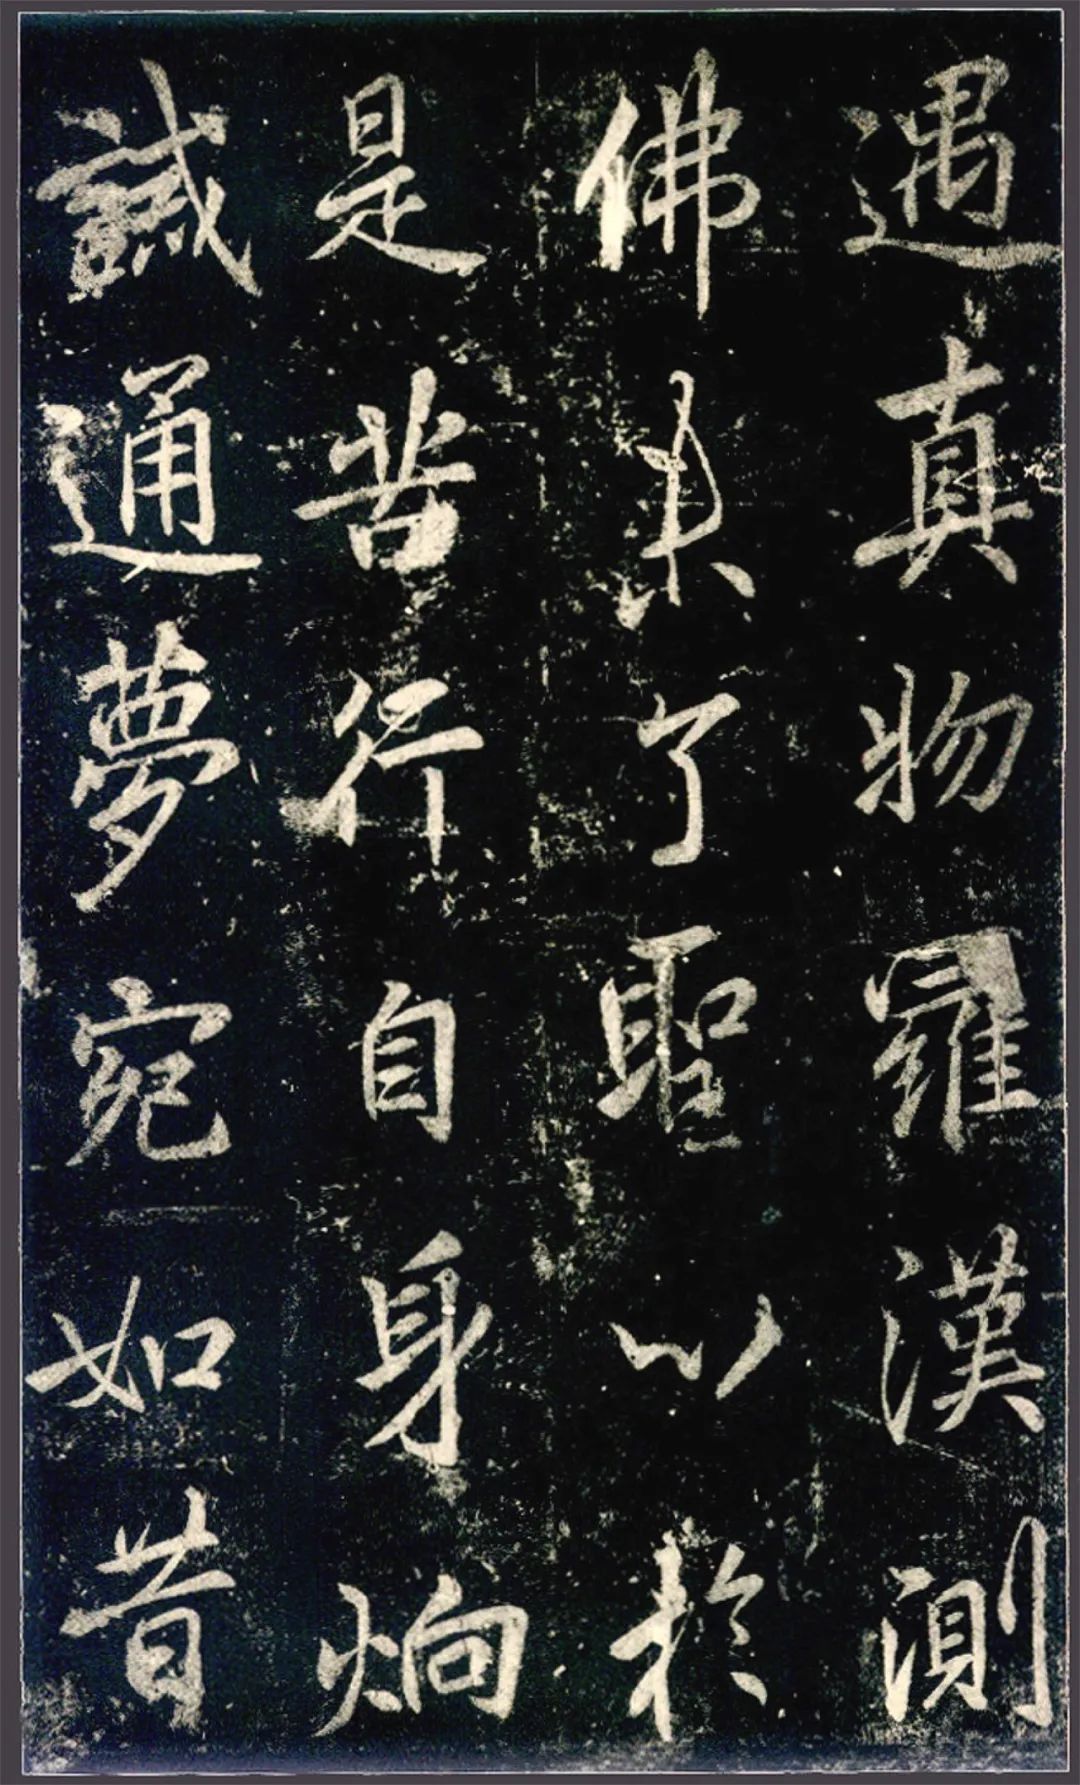 遇真物羅漢測
佛来了聖以於
是苦行自身炯
誡通夢宛如昔